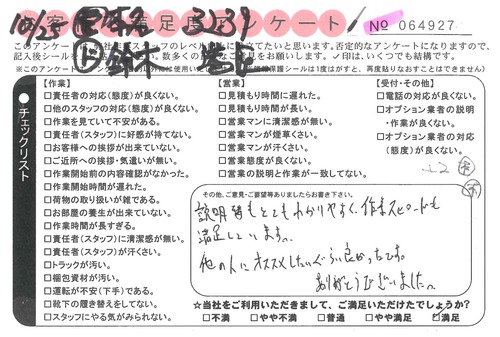 10/25
満足度アンケート
3239
No 064927
【作業】
□責任者の対応(態度)が良くない。
□他のスタッフの対応(態度)が良くない。
□作業を見ていて不安がある。
□責任者(スタッフ)に好感が持てない。
□お客様への挨拶が出来ていない。
□ご近所への挨拶・気遣いが無い。
□作業開始前の内容確認がなかった。
□作業開始時間が遅れた。
□荷物の取り扱いが雑である。
□お部屋の養生が出来ていない。
□作業時間が長すぎる。
□責任者(スタッフ)に清潔感が無い。
□責任者(スタッフ)が汗くさい。
□トラックが汚い。
□梱包資材が汚い。
□運転が不安(下手)である。
□靴下の履き替えをしてない。
□スタッフにやる気がみられない。
【営業】
□見積もり時間に遅れた。
□見積もり時間が長い。
□営業マンに清潔感が無い。
□営業マンが煙草くさい。
□営業マンが汗くさい。
□営業態度が良くない。
□営業の説明と作業が一致してない。
【受付・その他】
□電話の対応が良くない。
□オプション業者の説明
・作業が良くない。
□オプション業者の対応
(態度)が良くない。
●チェックリスト
その他、ご意見・ご要望等ありましたらお書き下さい。
説明等もとてもわかりやすく、作業スピードも
満足しています。
他の人にオススメしたいぐらい良かったです。
ありがとうございました。
☆当社をご利用いただきまして、ご満足いただけたでしょうか?
□不満 □やや不満 □普通 □やや満足 ☑満足